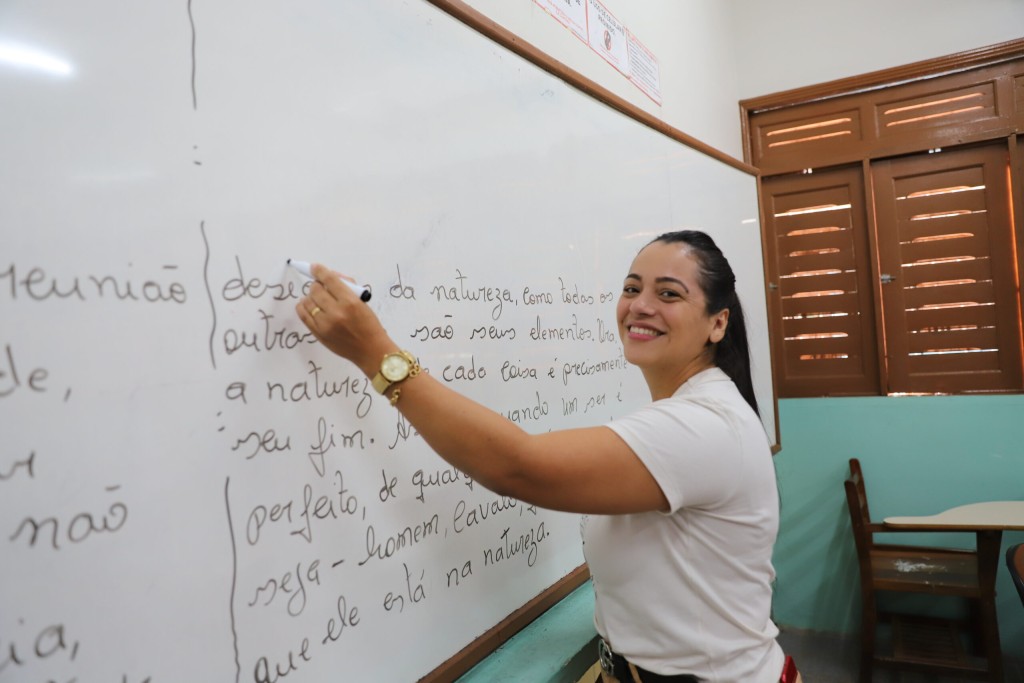 reunião
de,
não
da natureza, como todos os
outras são seus elementos. Ora,
a natureza de cada coisa é precisamente
seu fim. quando um ser é
perfeito, de
seja - homem, cavalo,
que ele está na natureza.